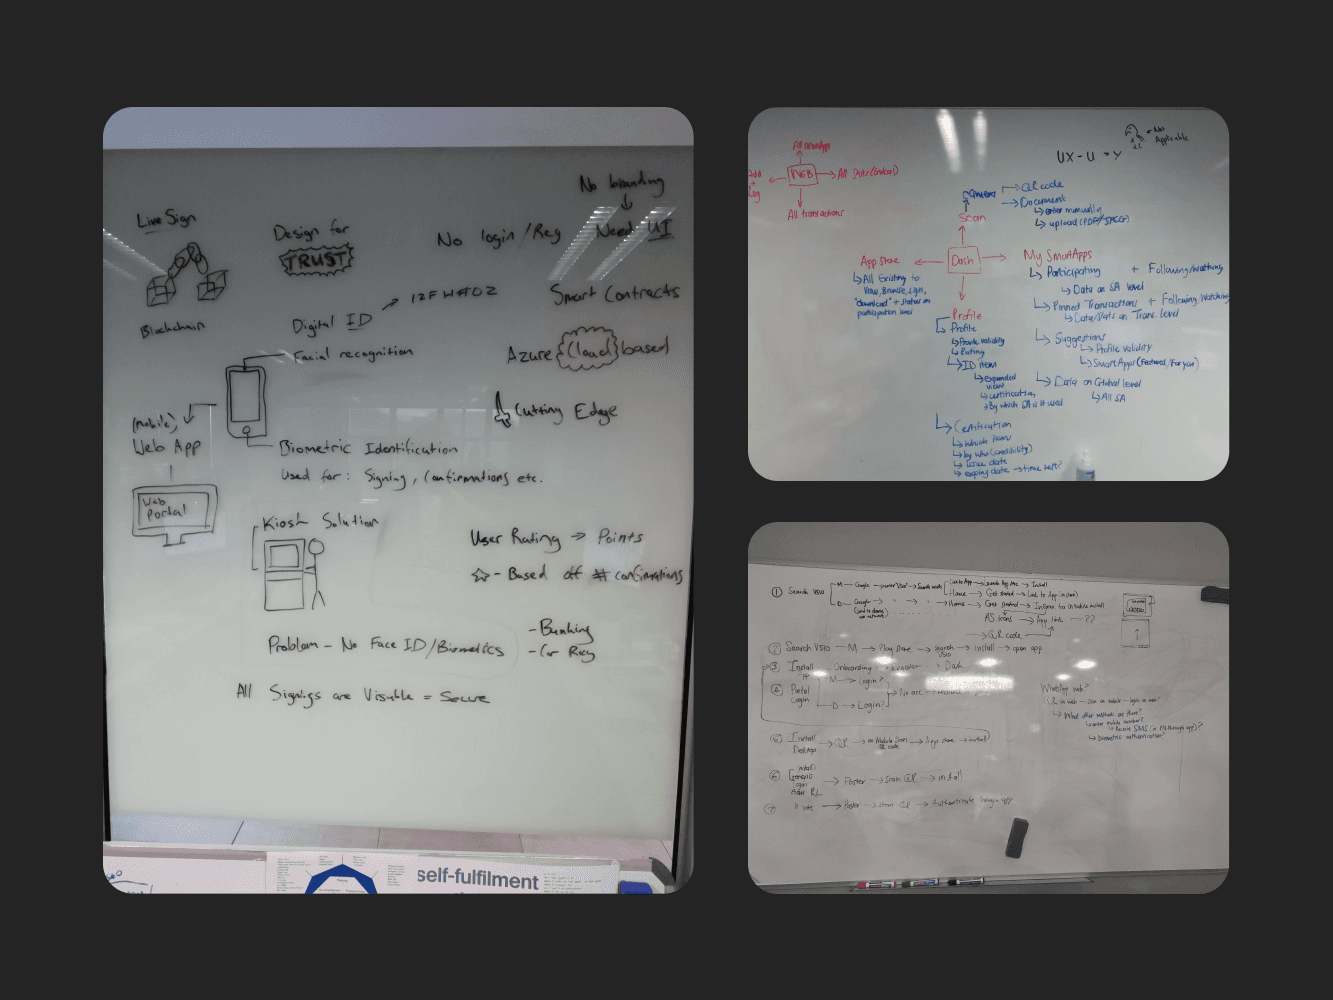 No branding
Live Sign
Design for
TRUST
No login/Reg
Need UI
Blockchain
Digital ID
Smart Contracts
Facial recognition
Azure Cloud based
Cutting Edge
(Mobile)
Web App
Biometric Identification
Used for: Signing, Confirmations etc.
Web
Portal
Kiosk Solution
User Rating → Points
- Based off # confirmations
Problem - No Face ID/Biometrics
- Banking
- Car Reg
All Signigs are Visuble = Secure
self-fulfilment
- Not
Applicable
UX-U = Y
All SmartApps
WEB
All Stats (Global)
All transactions
Camera
QR code
Document
enter manually
upload (PDF/JPEG)
Scan
App Store
Dash
My SmartApps
All Existing to
View, Browse, sign,
"download" + status on
participation level
Participating + Following/watching
Data on SA level
Pinned Transactions + Following/Watching
Data/Stats on Trans. level
Suggestions
Profile validity
SmartApps (Featured/For you)
Data on Global level
All SA
Profile
Profile
Profile validity
Rating
ID item
expanded
view
certification
By which SA is it used
Certification
Which item
by who (credibility)
issue date
expiry date → time left?
① Search VSIO
M - Google
Search results
Link to App → Search App Store → Install
Home → Get started → Link to App in store)
D - Google → " → " → Home → Get started
AS Icons → App link - ??
→ QR code
② Search VSIO - M → Play Store → search VSIO → install → open app
③ Install App
Onboarding
Dash
④ Portal Login
M → Login
D → Login
No acc
WhatsApp web?
What other methods are there?
enter mobile number?
Receive SMS (or PN through app)?
Biometric authentication?
⑤ Install Desktop → QR → on Mobile Scan QR code → App store → install
⑥ (install) Generic Login → Poster → Scan QR → install
⑦ → Poster → scan QR → Authenticate through app